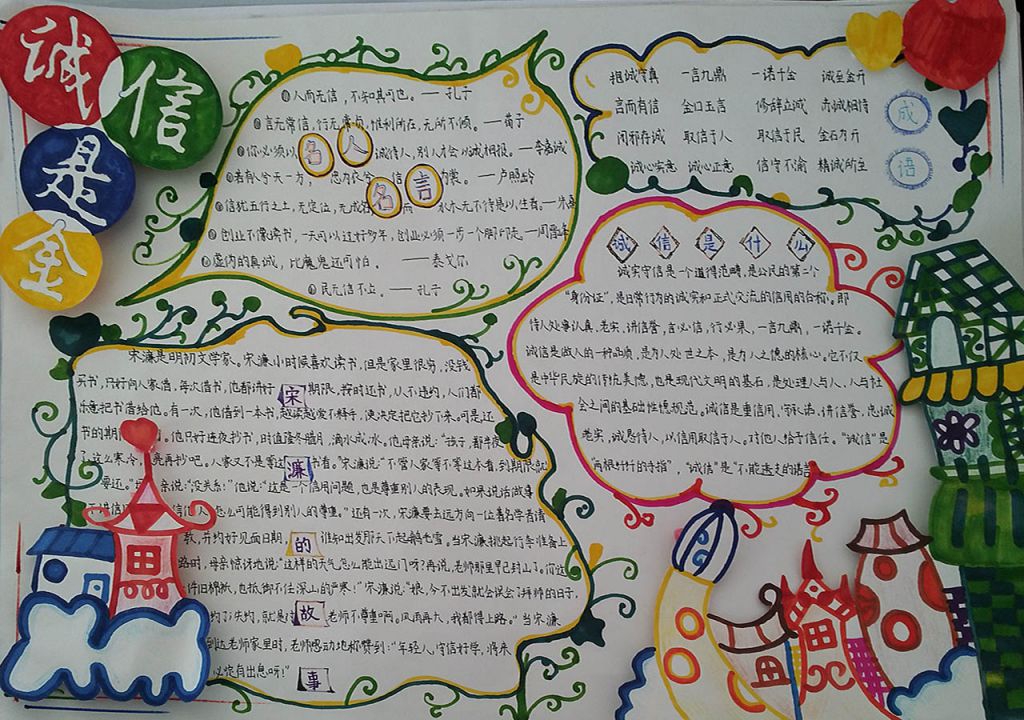 诚
信
是
金
①人而无信，不知其可也。——孔子
②言无常信，行无常贞，惟利所在，无所不倾。——荀子
③你必须以诚待人，别人才会以诚相报。——李嘉诚
名人
④若有人兮天一方，忠为衣兮信为裳。——卢照龄
名言
⑤信犹五行之土，无定位，无成名，而水火无不待是以生者。——朱熹
⑥创业不像读书，一天可以过好多年，创业必须一步一个脚印走。—周雪峰
⑦虚伪的真诚，比魔鬼还可怕。——泰戈尔
⑧民无信不立。——孔子
抱诚守真 一言九鼎 一诺千金 诚至金开
言而有信 金口玉言 修辞立诚 赤诚相待
闲邪存诚 取信于人 取信于民 金石为开
诚心实意 诚心正意 信守不渝 精诚所至
成
语
诚信是什么
诚实守信是一个道德范畴，是公民的第二个
“身份证”，是日常行为的诚实和正式交流的信用的合称。即
待人处事认真，老实，讲信誉，言必信，行必果，一言九鼎，一诺千金。
诚信是做人的一种品质，是为人处世之本，是为人之德的核心。它不仅
是中华民族的传统美德，也是现代文明的基石，是处理人与人、人与社
会之间的基础性德规范。诚信是重信用，守承诺，讲信誉，忠诚
老实，诚恳待人，以信用取信于人。对他人给予信任。“诚信”是
“两根竹竹的手指”，“诚信”是“不能透支的诺言
宋濂是明初文学家，宋濂小时候喜欢读书，但是家里很穷，没钱
买书，只好向人家借，每次借书，他都讲好期限，按时还书，从不违约，人们都
乐意把书借给他。有一次，他借到一本书，越读越爱不释手，便决定把它抄下来。可是还
书的期限 他只好连夜抄书，时值隆冬腊月，滴水成冰。他母亲说：“孩子，都半夜
了，这么寒冷，天亮再抄吧。人家又不是等这书看。”宋濂说：“不管人家等不等这本看，到期限就
要还。 亲说：“没关系！”他说：“这是一个信用问题，也是尊重别人的表现。如果说话做事
不讲信 怎么可能得到别人的尊重。”还有一次，宋濂要去远方向一位著名学者请
教，并约好见面日期，谁知出发那天下起鹅毛雪。当宋濂挑起行李准备上
路时，母亲惊讶地说：“这样的天气怎么能出远门呀？再说，老师那里早已封山了。你这
件旧棉袄，也抵御不住深山的严寒！”宋濂说：“娘，今不出发就会误会了拜师的日子，
约了；失约，就是对老师不尊重啊。风雨再大，我都得上路。”当宋濂
到达老师家里时，老师感动地称赞到：“年轻人，守信好学，将来
必定有出息呀！”
宋
濂
的
故
事